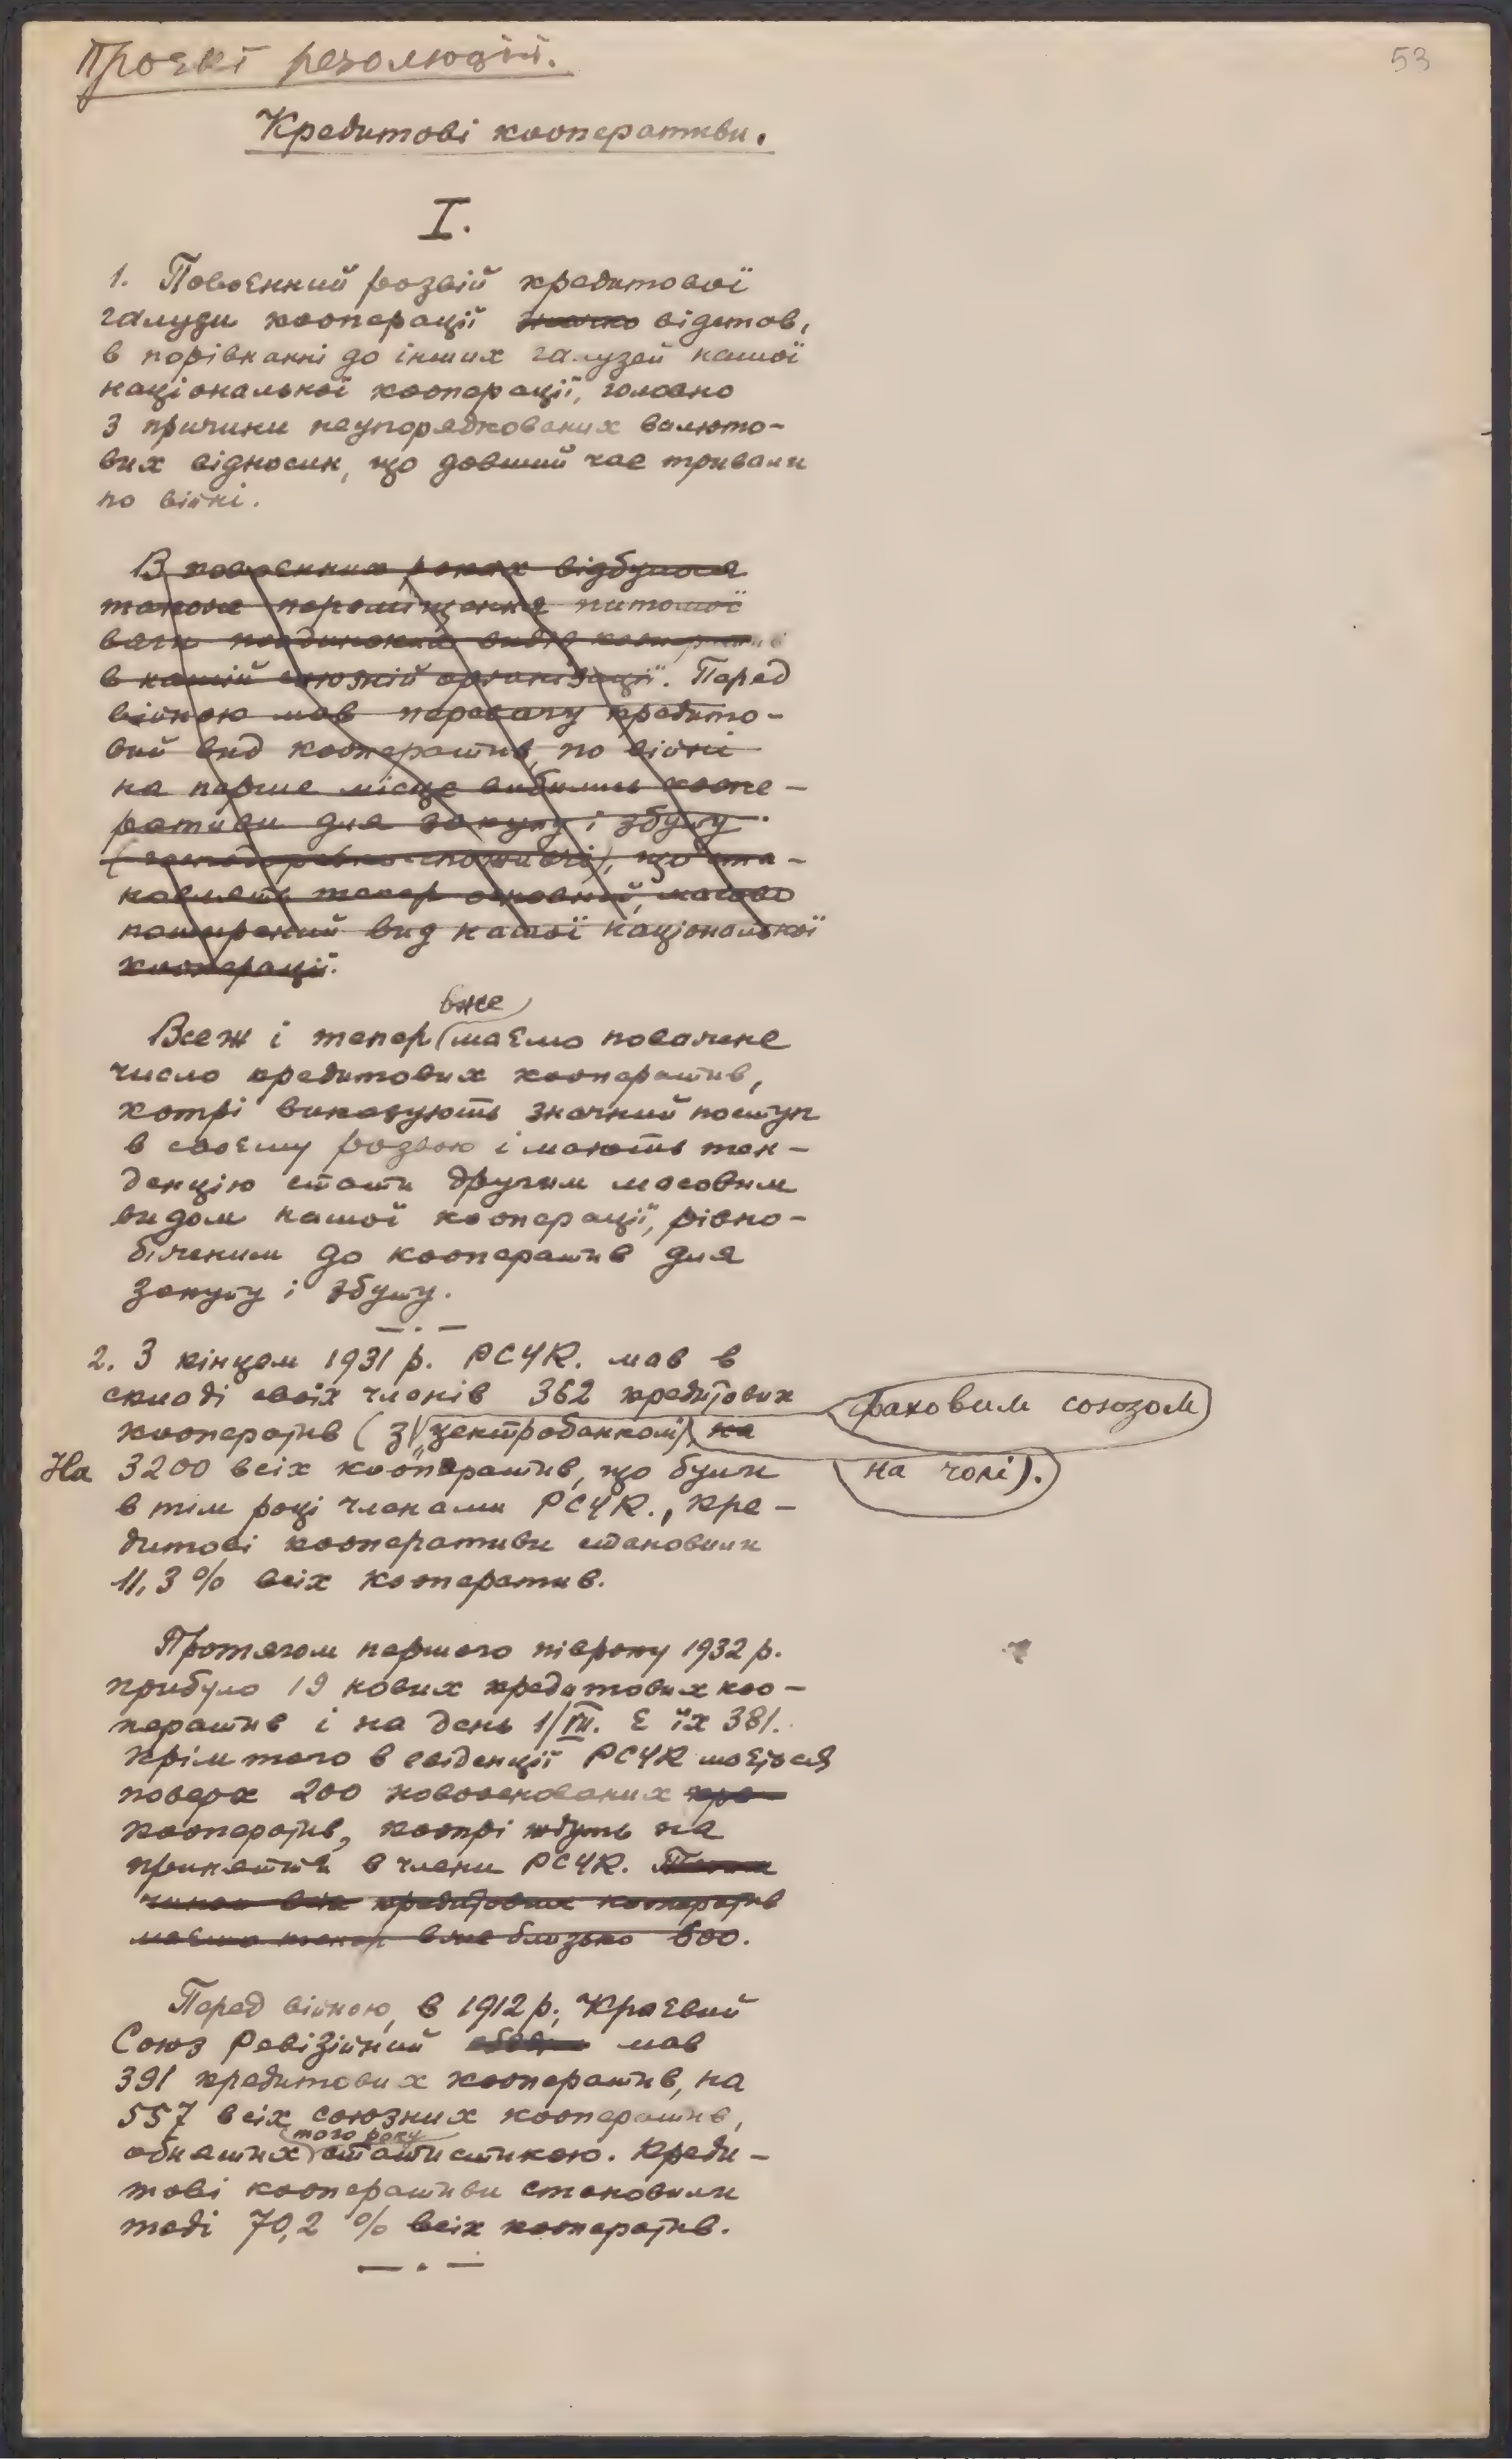 53
Проєкт резолюцій.
Кредитові кооперативи.
I.
1. Повоєнний розвій кредитової
галузи кооперації значно відстав,
в порівнанні до інших галузей нашої
національної кооперації, головно
з причини неупорядкованих валюто-
вих відносин, що довший час тривали
по війні.
В повоєнних роках відбулося
також переміщення питомої
ваги поодиноких видів кооператив
в нашій союзній організації. Перед
війною мав перевагу кредито-
вий вид кооператив, по війні
на перше місце вибились коопе-
ративи для закупу і збуту
(господарсько-споживчі), що ста-
новлять тепер основний, масово
поширений вид нашої національної
кооперації.
вже
Всеж і тепер маємо поважне
число кредитових кооператив,
котрі виказують значний поступ
в своєму розвою і мають тен-
денцію стати другим масовим
видом нашої кооперації, рівно-
біжним до кооператив для
закупу і збуту.
— . —
2. З кінцем 1931 р. РСУК. мав в
складі своїх членів 362 кредитових
кооператив (з „Центробанком“), на
фаховим союзом
на чолі).
На 3200 всіх кооператив, що були
в тім році членами РСУК., кре-
дитові кооперативи становили
11,3 % всіх кооператив.
Протягом першого півроку 1932 р.
прибуло 19 нових кредитових коо-
ператив і на день 1/VII. є їх 381.
Крім того в евіденції РСУК мається
поверх 200 новооснованих кре-
кооператив, котрі ждуть на
принняття в члени РСУК. Таким
чином всіх кредитових кооператив
маємо тепер вже близько 600.
Перед війною, в 1912 р., Краєвий
Союз Ревізійний мав
391 кредитових кооператив, на
557 всіх союзних кооператив,
того року
обнятих статистикою. Креди-
тові кооперативи становили
тоді 70,2 % всіх кооператив.
— . —